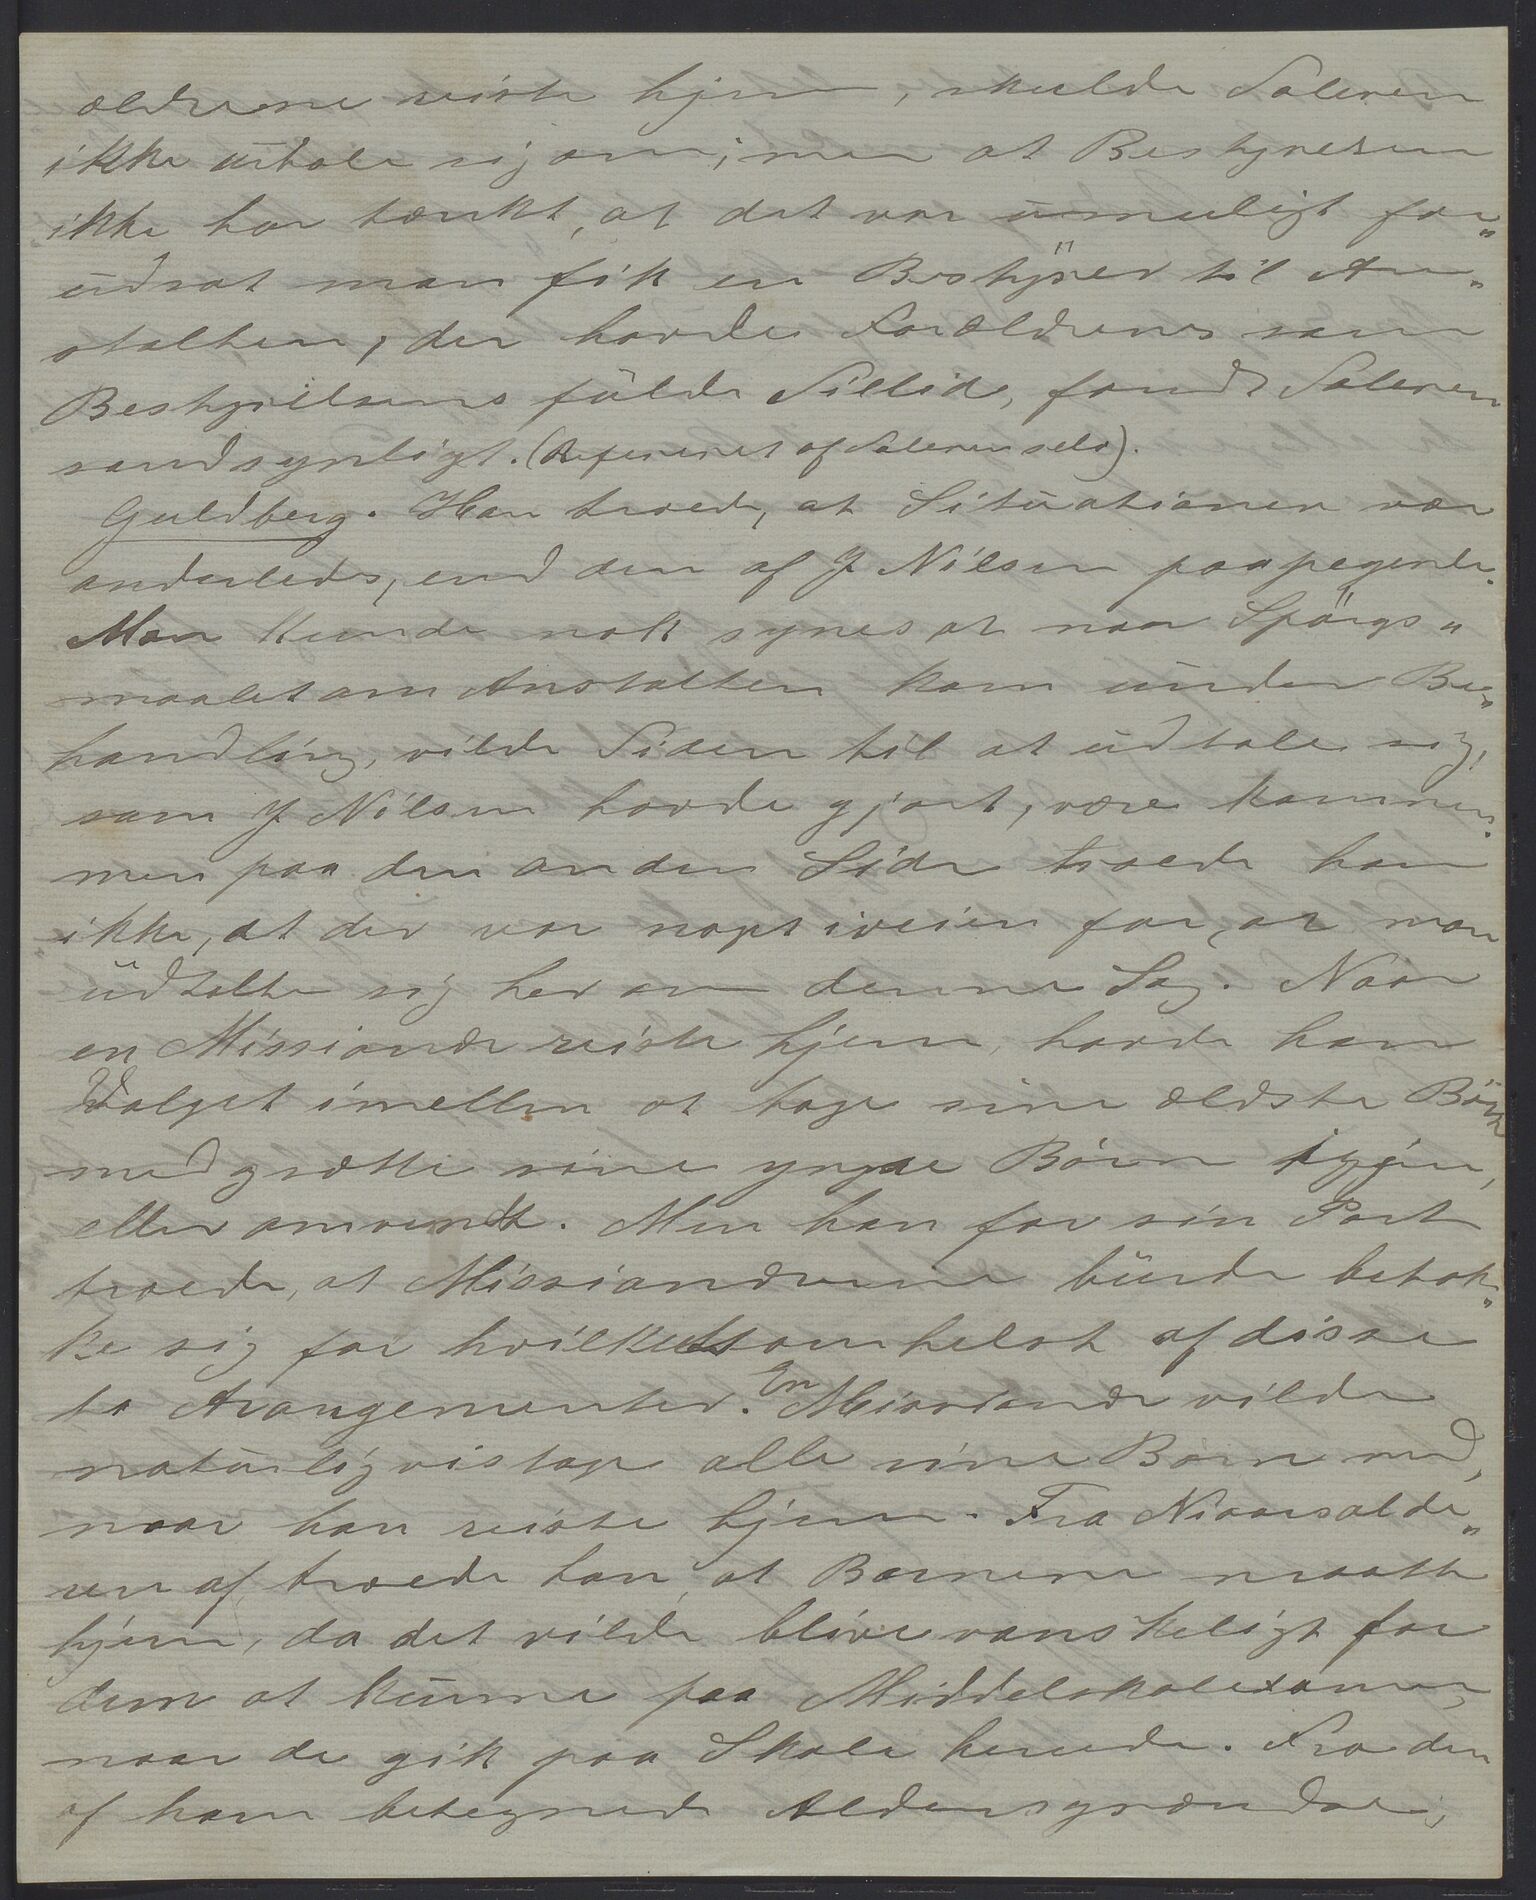 ældrene reiste hjem, skulde Taleren
ikke udtale sig om; men at Bestyrelsen
ikke har tænkt, at det var umuligt for„
udsat man fik en Bestyrer til An„
stalten, der havde Forældrenes som
Bestyrelsens fulde Tillid, fandt Taleren
sandsynligt. (Refereret af Taleren selv).
Guldberg. Han troede, at Situationen var
anderledes, end den af J Nilsen paapegende.
Man kunde nok synes at naar Spörgs„
maalet om Anstalten kom under Be„
handling, vilde Tiden til at udtale sig,
som J Nilsen havde gjort, være kommen.
men paa den anden Side troede han
ikke, at der var noget iveien for, at man
udtalte sig her om denne Sag. Naar
en Missionær reiste hjem, havde han
Valget imellem at tage sine ældste Börn
med og sætte sine yngre Börn igjen,
eller omvendt. Men han for sin Part
troede, at Missionærerne burde betak„
ke sig for hvilketsomhelst af disse
to Arangementer. En Missionær vilde
naturligvis tage alle sine Børn med,
naar han reiste hjem. Fra Niaarsalde„
ren af troede han, at Børnene maatte
hjem, da det vilde blive vanskeligt for
dem at kunne faa Middelskolexamen,
naar de gik paa Skole hernede. Fra den
af ham betegnede Aldersgrændse,